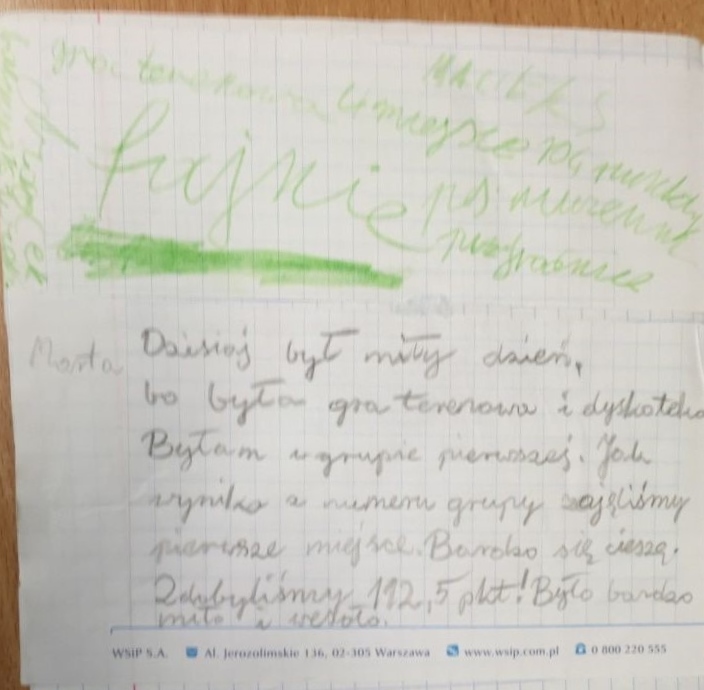 MACIEK S
gra terenowa 4 miejsce 104 punkty
fajnie
Marta
Dzisiaj był miły dzień,
bo była gra terenowa i dyskoteka
Byłam w grupie pierwszej. Jak
wynika z numeru grupy zajęliśmy
pierwsze miejsce. Bardzo się cieszę.
Zdobyliśmy 112,5 pkt! Było bardzo
miło i wesoło.
WSiP S.A. Al. Jerozolimskie 136, 02-305 Warszawa www.wsip.com.pl 0 800 220 555